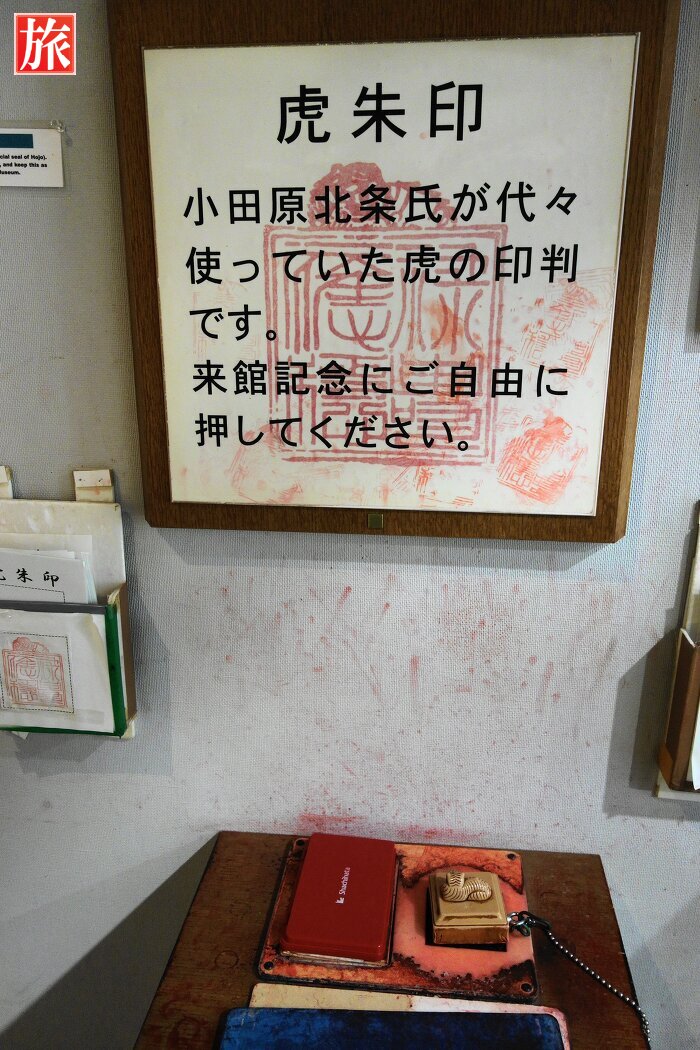 旅
虎朱印
小田原北条氏が代々
使っていた虎の印判
です。
来館記念にご自由に
押してください。
cial seal of Hojo).
, and keep this as
useum.
朱印
Shachihata